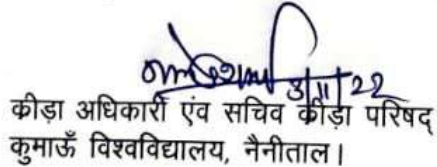 3/11/22
कीड़ा अधिकारी एंव सचिव कीड़ा परिषद्
कुमाऊँ विश्वविद्यालय, नैनीताल।